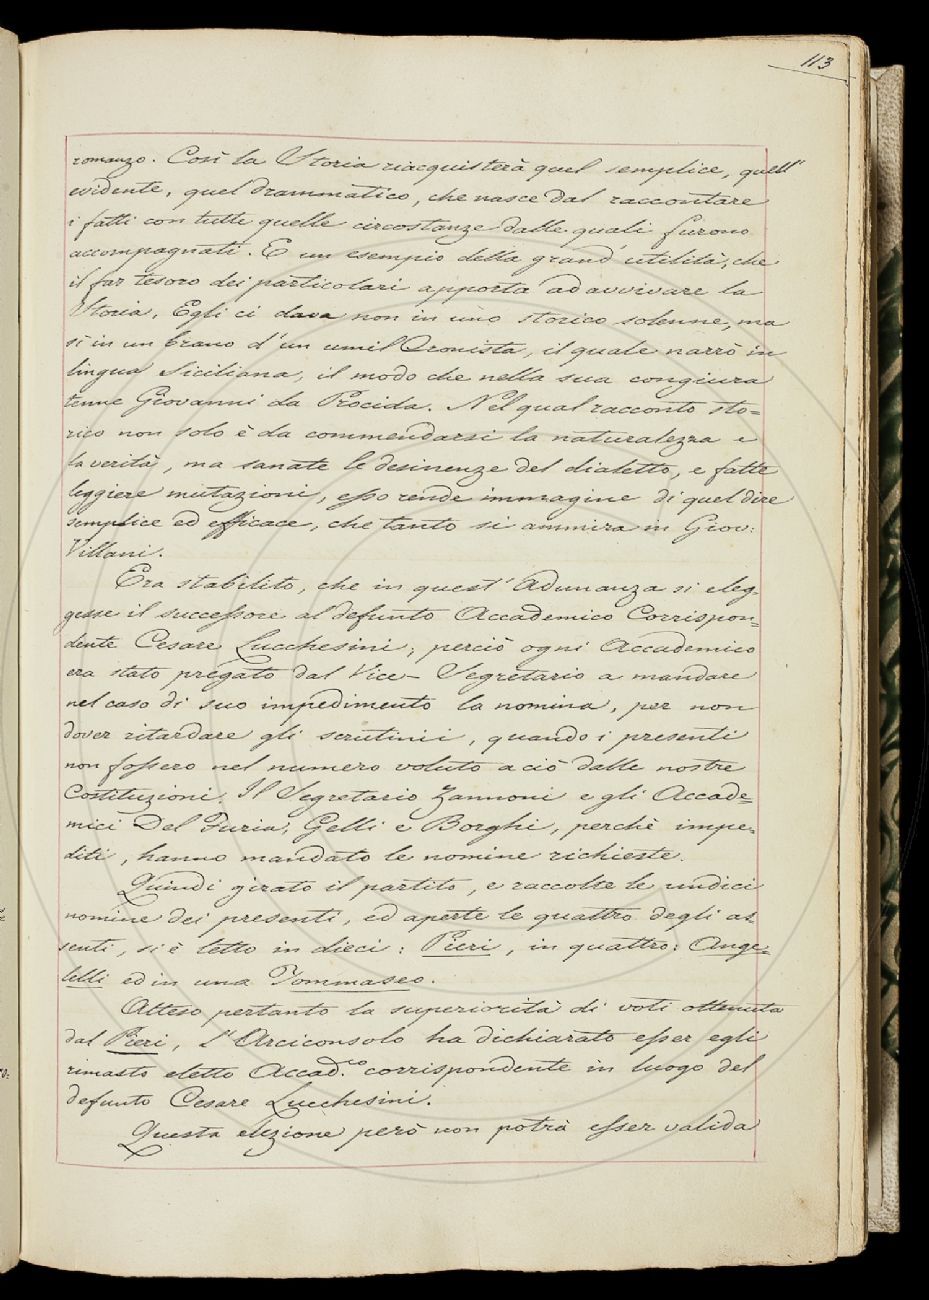 113
romanzo. Così la Storia riacquisterà quel semplice, quell'
evidente, quel drammatico, che nasce dal raccontare
i fatti con tutte quelle circostanze dalle quali furono
accompagnati. E un esempio della grand'utilità, che
il far tesoro dei particolari apporta ad avvivare la
Storia, Egli ci dava non in uno storico solenne, ma
sì in un brano d'un umil Cronista, il quale narrò in
lingua Siciliana, il modo che nella sua congiura
tenne Giovanni da Procida. Nel qual racconto sto=
rico non solo è da commendarsi la naturalezza e
la verità, ma sanate le desinenze del dialetto, e fatte
leggiere mutazioni, esso rende immagine di quel dire
semplice ed efficace, che tanto si ammira in Giov:
Villani.
Era stabilito, che in quest'Adunanza si eleg-
gesse il successore al defunto Accademico Corrispon=
dente Cesare Lucchesini; perciò ogni Accademico
era stato pregato dal Vice-Segretario a mandare
nel caso di suo impedimento la nomina, per non
dover ritardare gli scrutinii, quando i presenti
non fossero nel numero voluto a ciò dalle nostre
Costituzioni. Il Segretario Zannoni e gli Accade=
mici Del Furia, Gelli e Borghi, perchè impe-
diti, hanno mandato le nomine richieste.
Quindi girato il partito, e raccolte le undici
nomine dei presenti, ed aperte le quattro degli as-
senti, si è letto in dieci: Pieri, in quattro: Ange=
lelli ed in una Tommaseo.
Atteso pertanto la superiorità di voti ottenuta
dal Pieri, l'Arciconsolo ha dichiarato esser egli
rimasto eletto Accad.co corrispondente in luogo del
defunto Cesare Lucchesini.
Questa elezione però non potrà esser valida